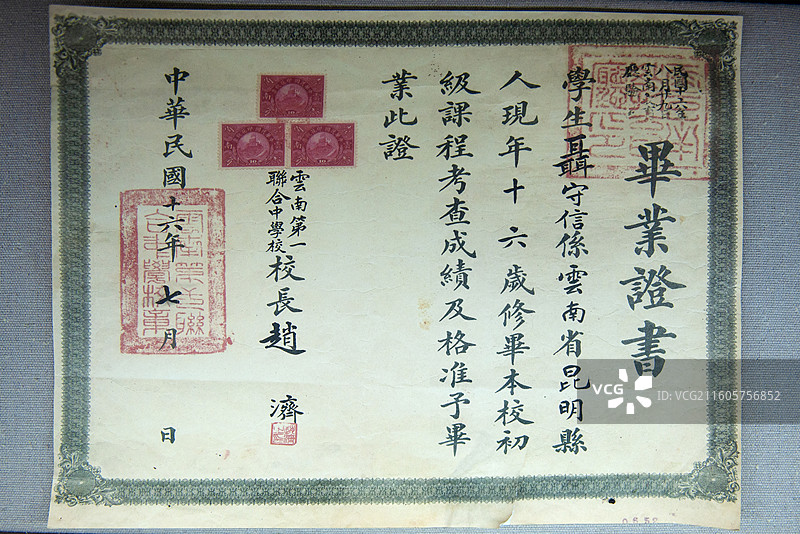 畢業證書
學生聶守信係雲南省昆明縣
人現年十六歲修畢本校初
級課程考查成績及格准予畢
業此證
雲南第一
聯合中學校
校長趙濟
中華民國十六年七月 日
VCG
VCG
ID: VCG211605756852